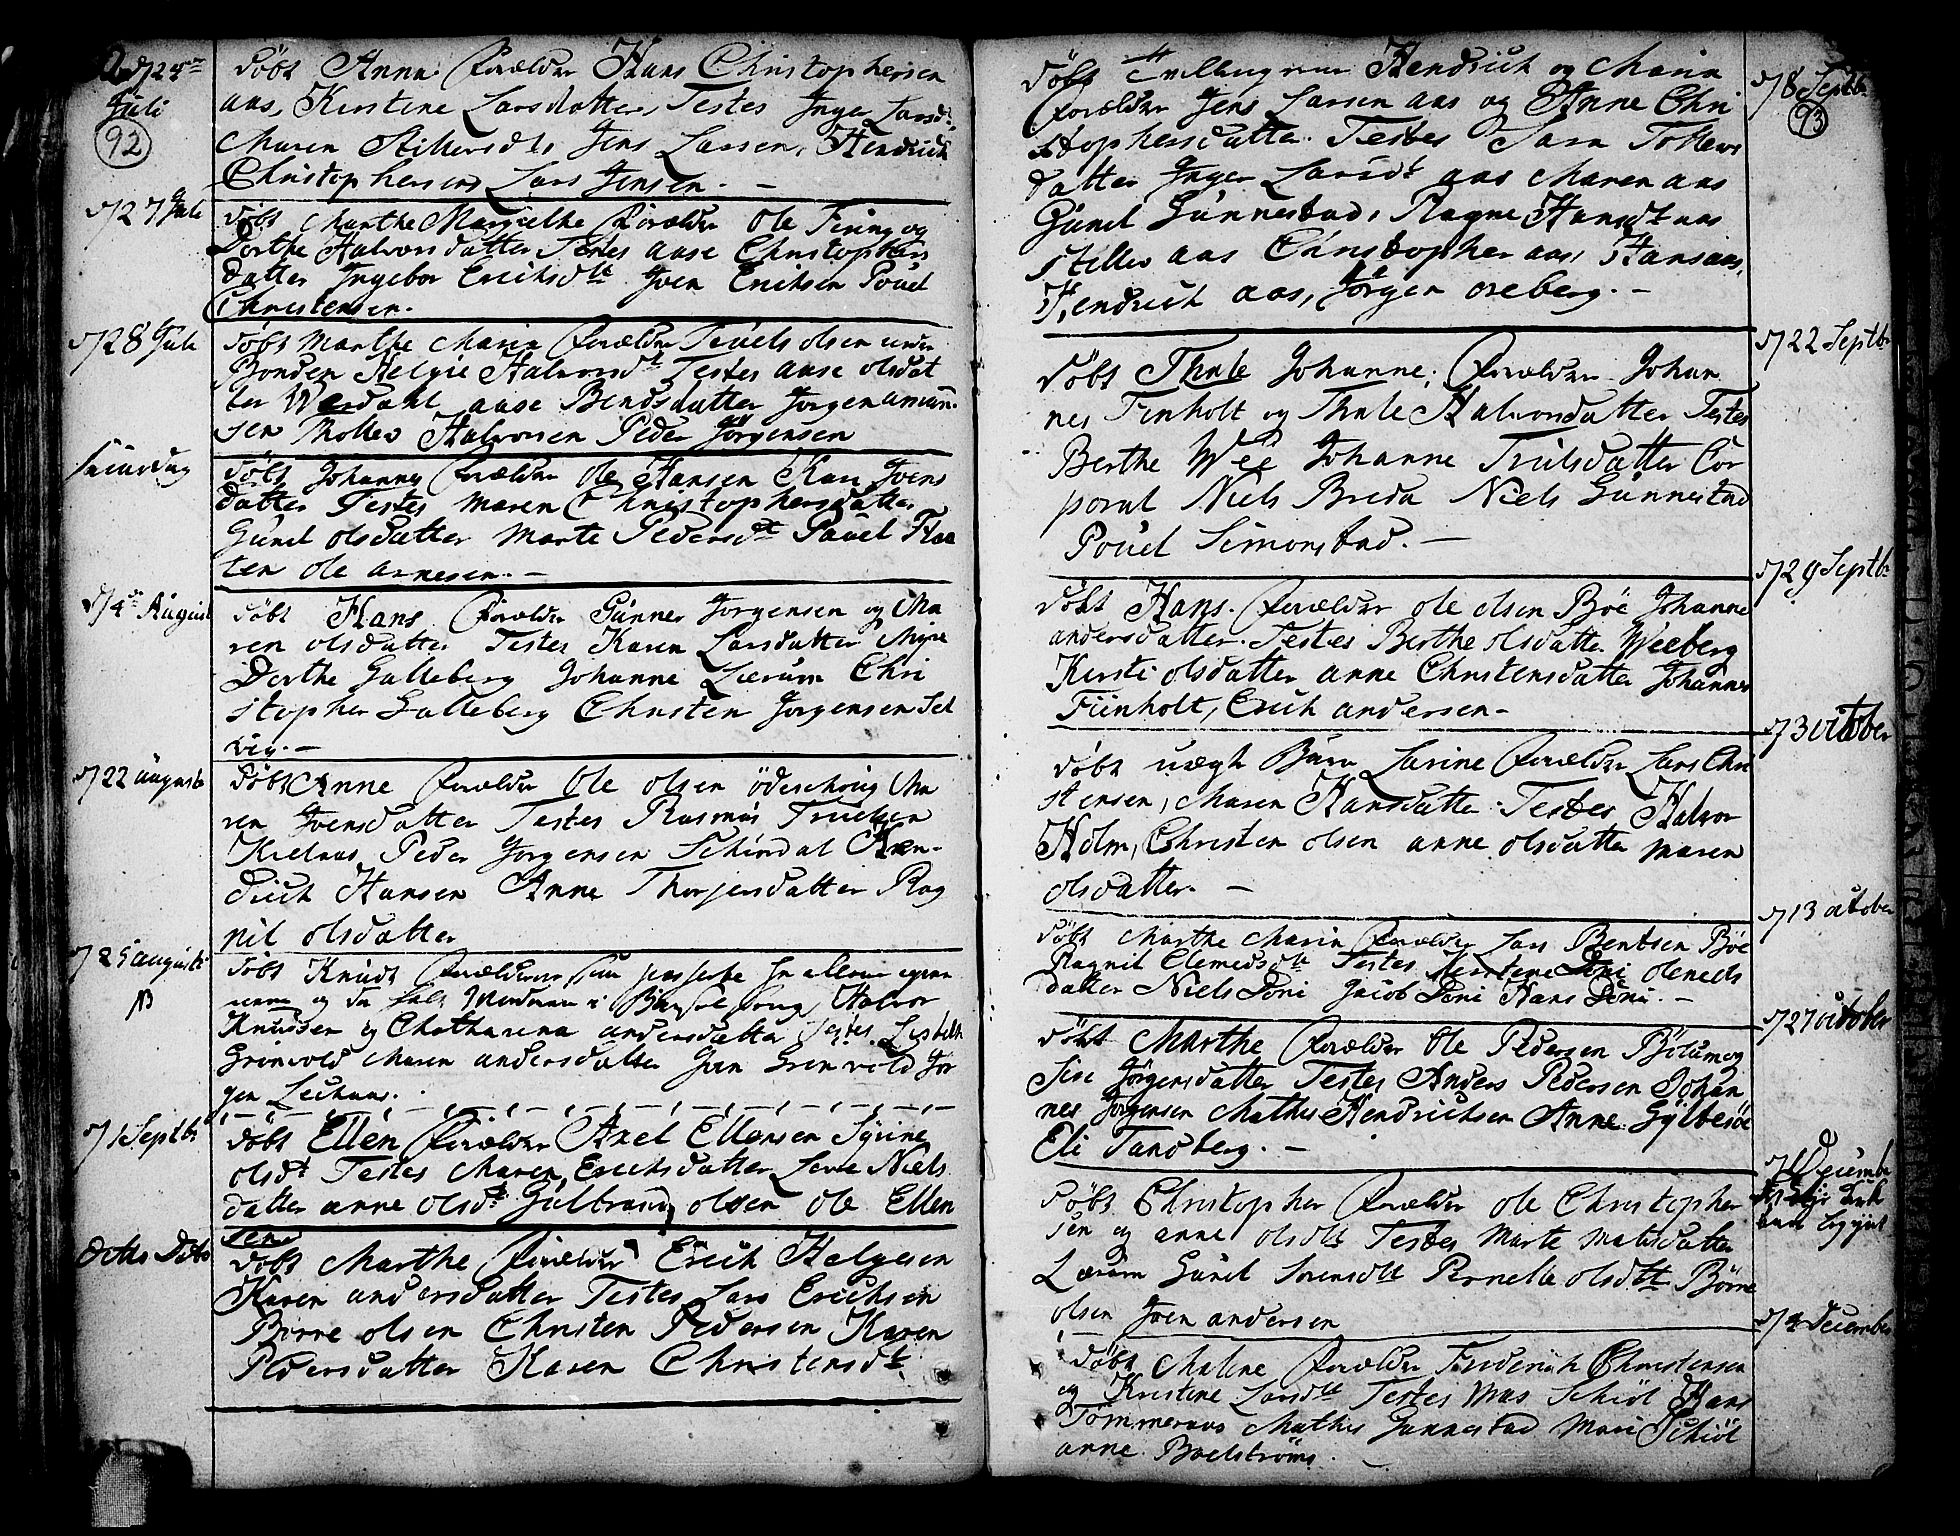 d 24de
Juli
92
døbt Anna Forældre Hans Christophersen
aas, Kirstine Larsdatter, Testes Inger Larsd.
Maren Stillersdt Jens Larsen, Hendrich
Christophersen Lars Jensen. –
d 27 Juli
døbt Marthe Margrethe Forældre Ole Fining og
Dorthe Halvorsdatter Testes aase Christophers
datter Ingebor Erichsdt Iven Erichsen Pouel
Christensen.
d 28 Juli
døbt Marthe Maria Forældre Truels olsen under
Bonden Helgie Halvorsdt Testes aase olsdat
ter Werdahl aase Bendsdatter Jørgen amun
sen Tholles Halvorsen Peder Jørgensen
døbt Johannes Forældre Ole Hansen Kari Ivers
datter Testes Maren Christophersdatter
Gunel olsdatter Marte Pedersdt Pouel Flaa
ten ole arnesen. –
d 4de August
døbt Hans Forældre Gunner Jørgensen og Ma
ren olsdatter Testes Karen Larsdatter Myre
Dorthe Galleberg Johanne Lærum Chri
stopher Galleberg Christen Jørgensen Sel
vig. –
d 22 august
døbt Anne Forældre Ole olsen ödeschoug Ma
ren Iversdatter Testes Rasmus Truelsen
Kielaas Peder Jørgensen Schindal Hen-
drich Hansen Anne Thorjersdatter Rag
nil olsdatter
d 25 august
døbt Knudt Forældrene
og Halvor
Knudsen og Chatharina andersdatter Testes Lisbeth
Grinvold Maren andersdatter Jan Grenvold Jør
gen Lechaas.
d 1 Septbr
døbt Ellen Forældre Axel Ellensen Syrine
olsdt Testes Maren Erichsdatter Lene Niels
datter anne olsdt Gulbrand olsen ole Ellen
sen
Ditto Dito
døbt Marthe Forældre Erich Helgesen
Karen andersdatter Testes Lars Erichsen
Børre olsen Christen Pedersen Karen
Pedersdatter Karen Christensdt.
d 8 Septbr
93
døbt Tvillingerne Hendrich og Maria
Forældre Jens Larsen aas og Anne Chri
stophersdatter. Testes Sara Tollevs
datter Inger Larsdt aas Maren aas
Gunel Gunnestad, Ragne Hansdt aas
Stiller aas Christopher aas, Hans aas,
Hendrich aas, Jørgen oreberg. –
d 22 Septbr
døbt Thale Johanne, Forældre Johan
nes Finholt og Thale Halvorsdatter Testes
Berthe Wee Johanne Trulsdatter Cor
poral Niels Breda Niels Gunnestad
Pouel Simonstad. –
d 29 Septbr
døbt Hans. Forældre ole olsen Böe Johanne
andersdatter. Testes Berthe olsdatter Weeberg
Kersti olsdatter anne Christensdatter Johannes
Finholt, Erich andersen –
d 3 october
døbt uægte Barn Larine Forældre Lars Chri
stensen, Maren Hansdatter. Testes Halvor
Holm, Christen olsen anne olsdatter Maren
olsdatter. –
d 13 october
døbt Marthe Maria Forældre Lars Bentsen Böe
Ragnil Clemedsdt Testes Kirstene Döni
datter Niels Döni Jacob Döni Hans Döni. –
d 27 october
døbt Marthe Forældre Ole Pedersen Bölum og
Sise Jørgensdatter Testes Anders Pedersen Johan
nes Jørgensen Mathis Hendrichsen Anne Gÿlbesöe
Eli Tandberg. –
d 1 Decembr
døbt Christopher Forældre ole Christopher
sen og anne olsdtt Testes Marte Matisdatter
Lærum Gunil Sorensdtt Pernelle olsdtt Börre
olsen Iven andersen
d 4 December
døbt Malene Forældre Friderich Christensen
og Kristine Larsdtt Testes Mas Schiöl Hans
Tömmeraas Mathis Gunnestad Mari Schiöl
anne Boelströms. –